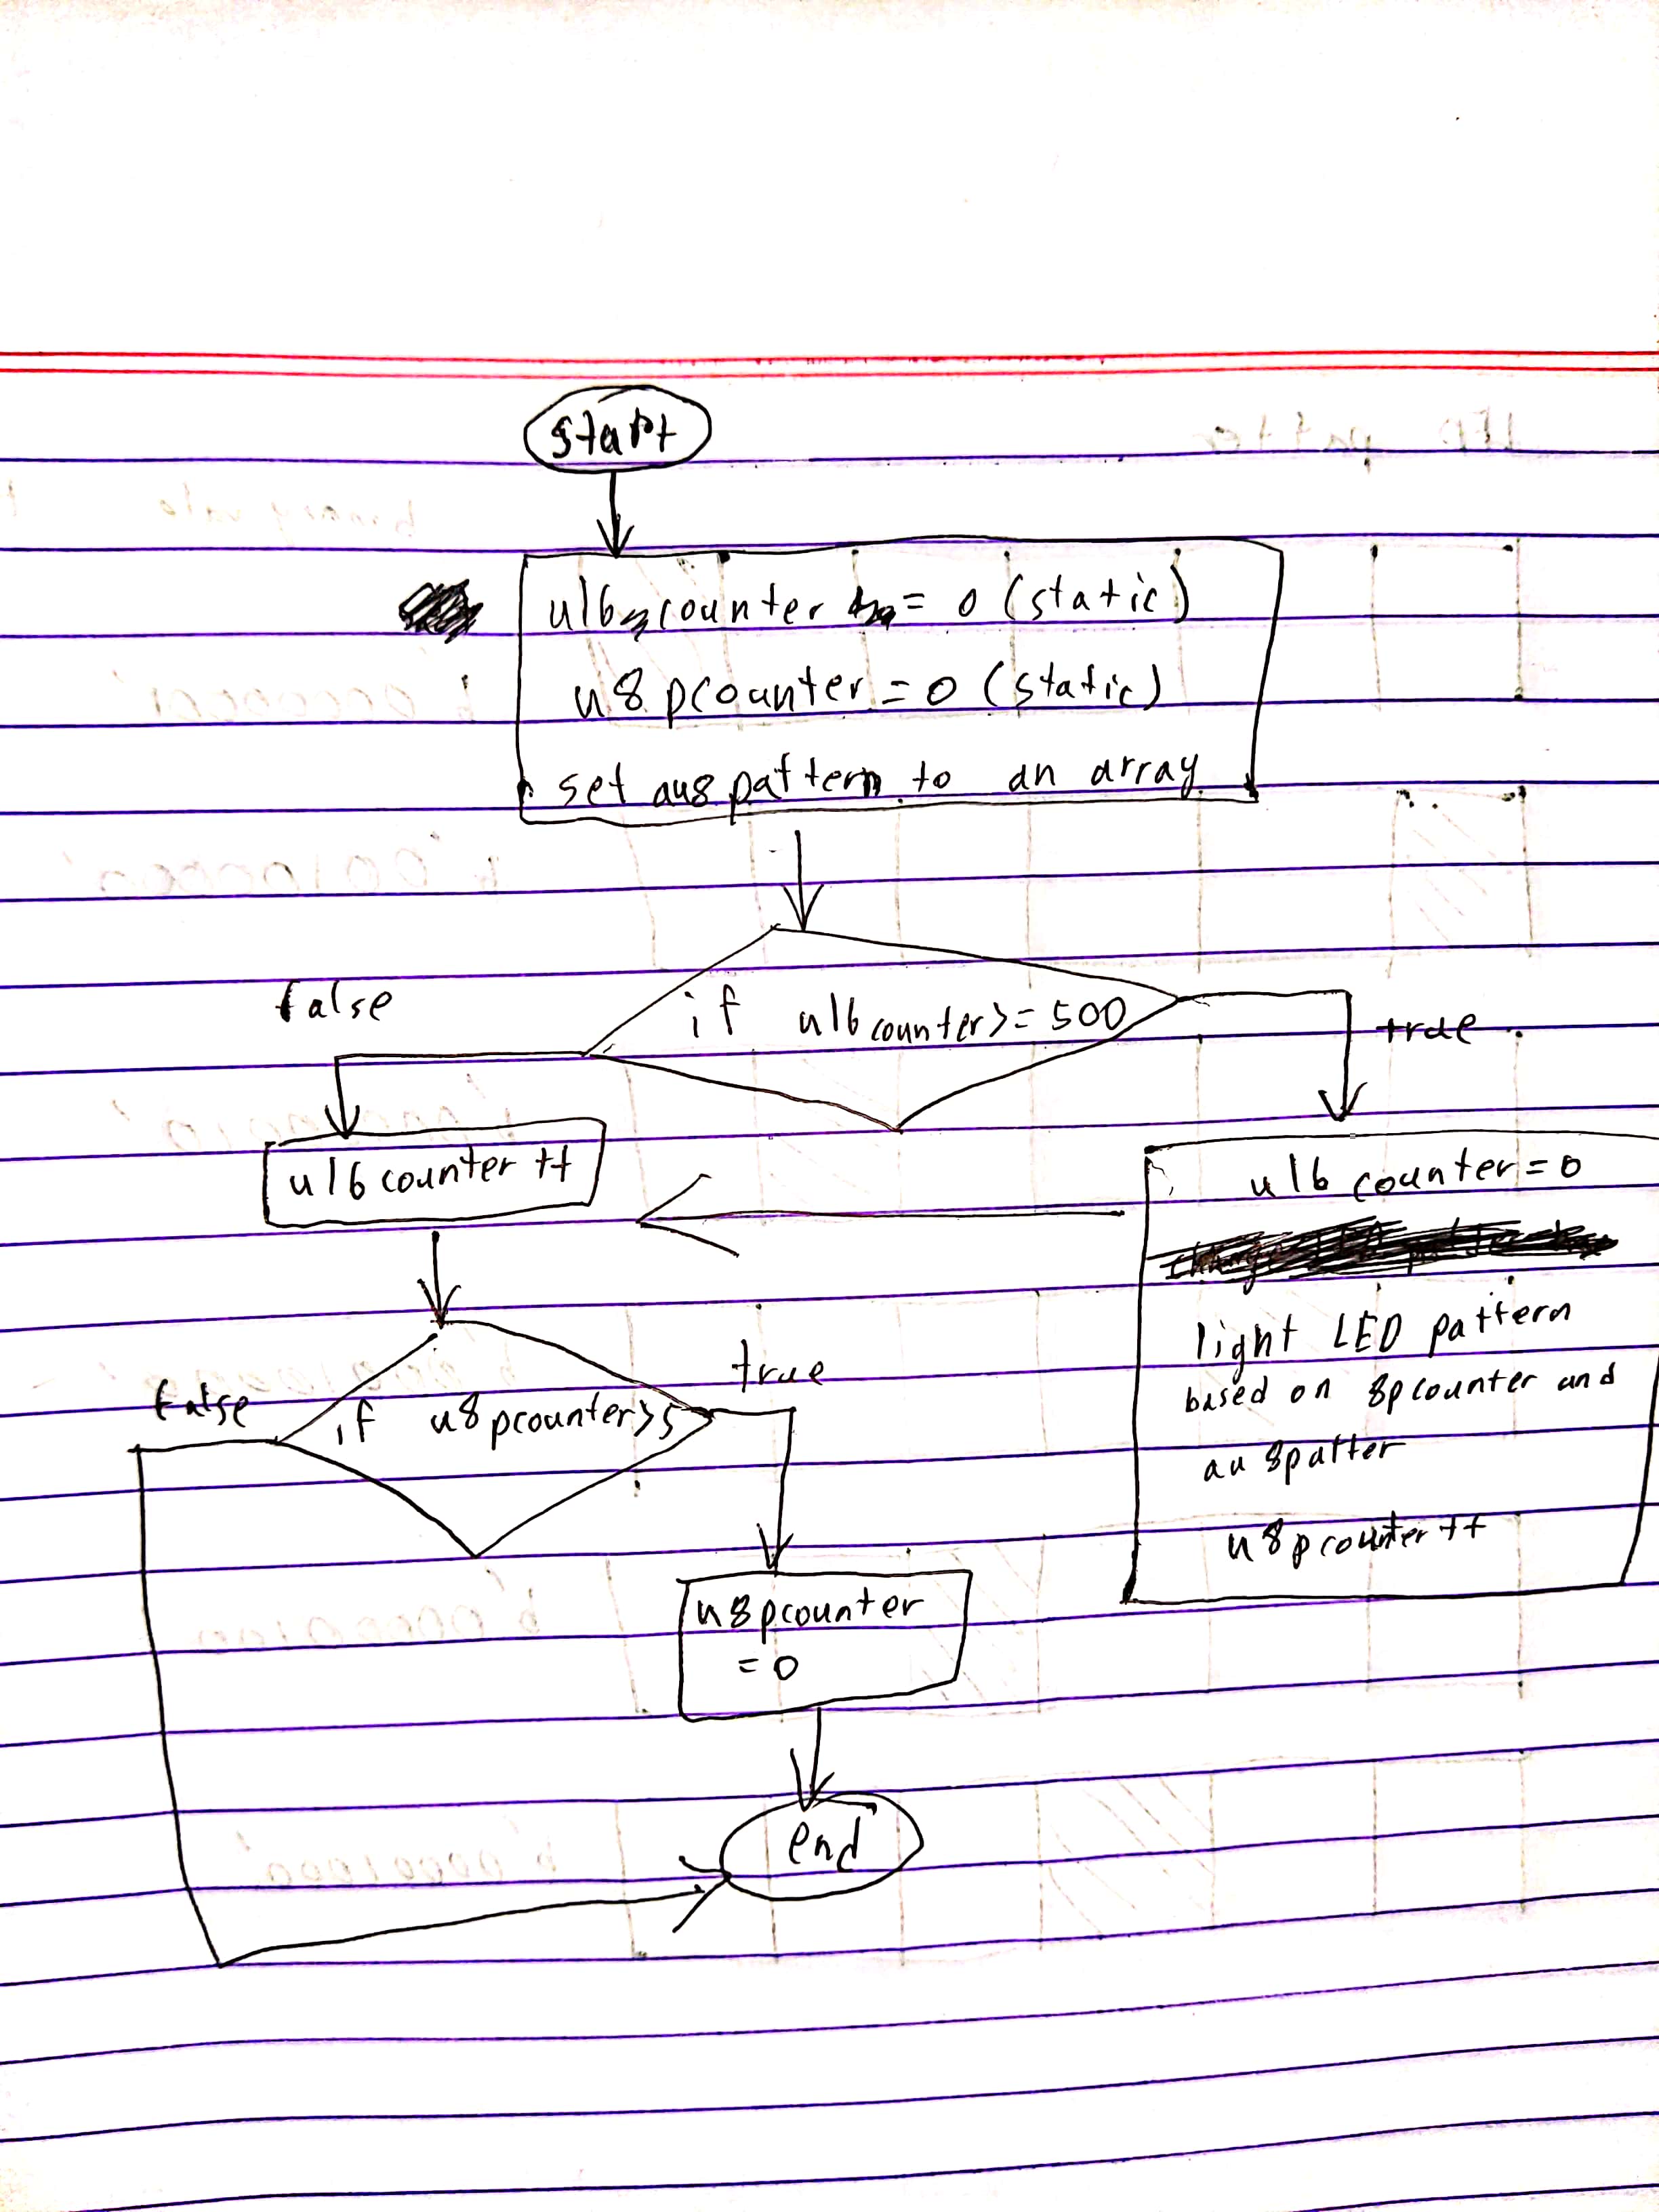 start
u16counter = 0 (static)
u8pcounter = 0 (static)
set au8pattern to an array
if u16counter>=500
false
true
u16counter++
u16counter=0
light LED pattern
based on 8pcounter and
au8patter
u8pcounter++
if u8pcounter>5
false
true
u8pcounter
=0
end